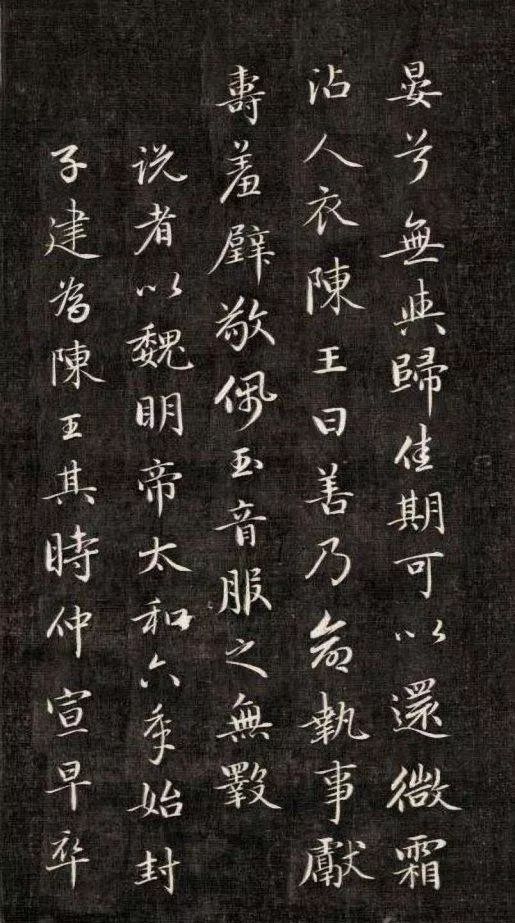 晏兮無與歸佳期可以還微霜
沾人衣陳王曰善乃命執事獻
壽羞璧敬佩玉音服之無斁
说者以魏明帝太和六年始封
子建為陳王其時仲宣早卒